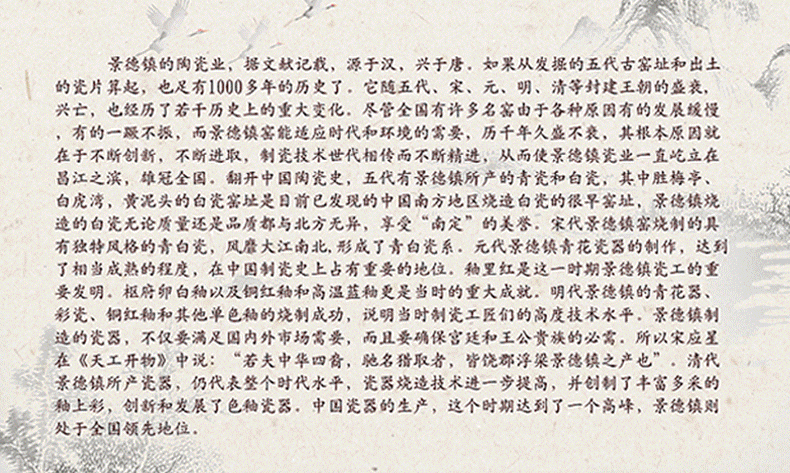 景德镇的陶瓷业，据文献记载，源于汉，兴于唐。如果从发掘的五代古窑址和出土
的瓷片算起，也足有1000多年的历史了。它随五代、宋、元、明、清等封建王朝的盛衰，
兴亡，也经历了若干历史上的重大变化。尽管全国有许多名窑由于各种原因有的发展缓慢
，有的一蹶不振，而景德镇窑能适应时代和环境的需要，历千年久盛不衰，其根本原因就
在于不断创新，不断进取，制瓷技术世代相传而不断精进，从而使景德镇瓷业一直屹立在
昌江之滨，雄冠全国。翻开中国陶瓷史，五代有景德镇所产的青瓷和白瓷，其中胜梅亭、
白虎湾，黄泥头的白瓷窑址是目前已发现的中国南方地区烧造白瓷的很早窑址，景德镇烧
造的白瓷无论质量还是品质都与北方无异，享受“南定”的美誉。宋代景德镇窑烧制的具
有独特风格的青白瓷，风靡大江南北,形成了青白瓷系。元代景德镇青花瓷器的制作，达到
了相当成熟的程度，在中国制瓷史上占有重要的地位。釉里红是这一时期景德镇瓷工的重
要发明。枢府卵白釉以及铜红釉和高温蓝釉更是当时的重大成就。明代景德镇的青花器、
彩瓷、铜红釉和其他单色釉的烧制成功，说明当时制瓷工匠们的高度技术水平。景德镇制
造的瓷器，不仅要满足国内外市场需要，而且要确保宫廷和王公贵族的必需。所以宋应星
在《天工开物》中说：“若夫中华四裔，驰名猎取者，皆饶郡浮梁景德镇之产也”。清代
景德镇所产瓷器，仍代表整个时代水平，瓷器烧造技术进一步提高，并创制了丰富多采的
釉上彩，创新和发展了色釉瓷器。中国瓷器的生产，这个时期达到了一个高峰，景德镇则
处于全国领先地位。